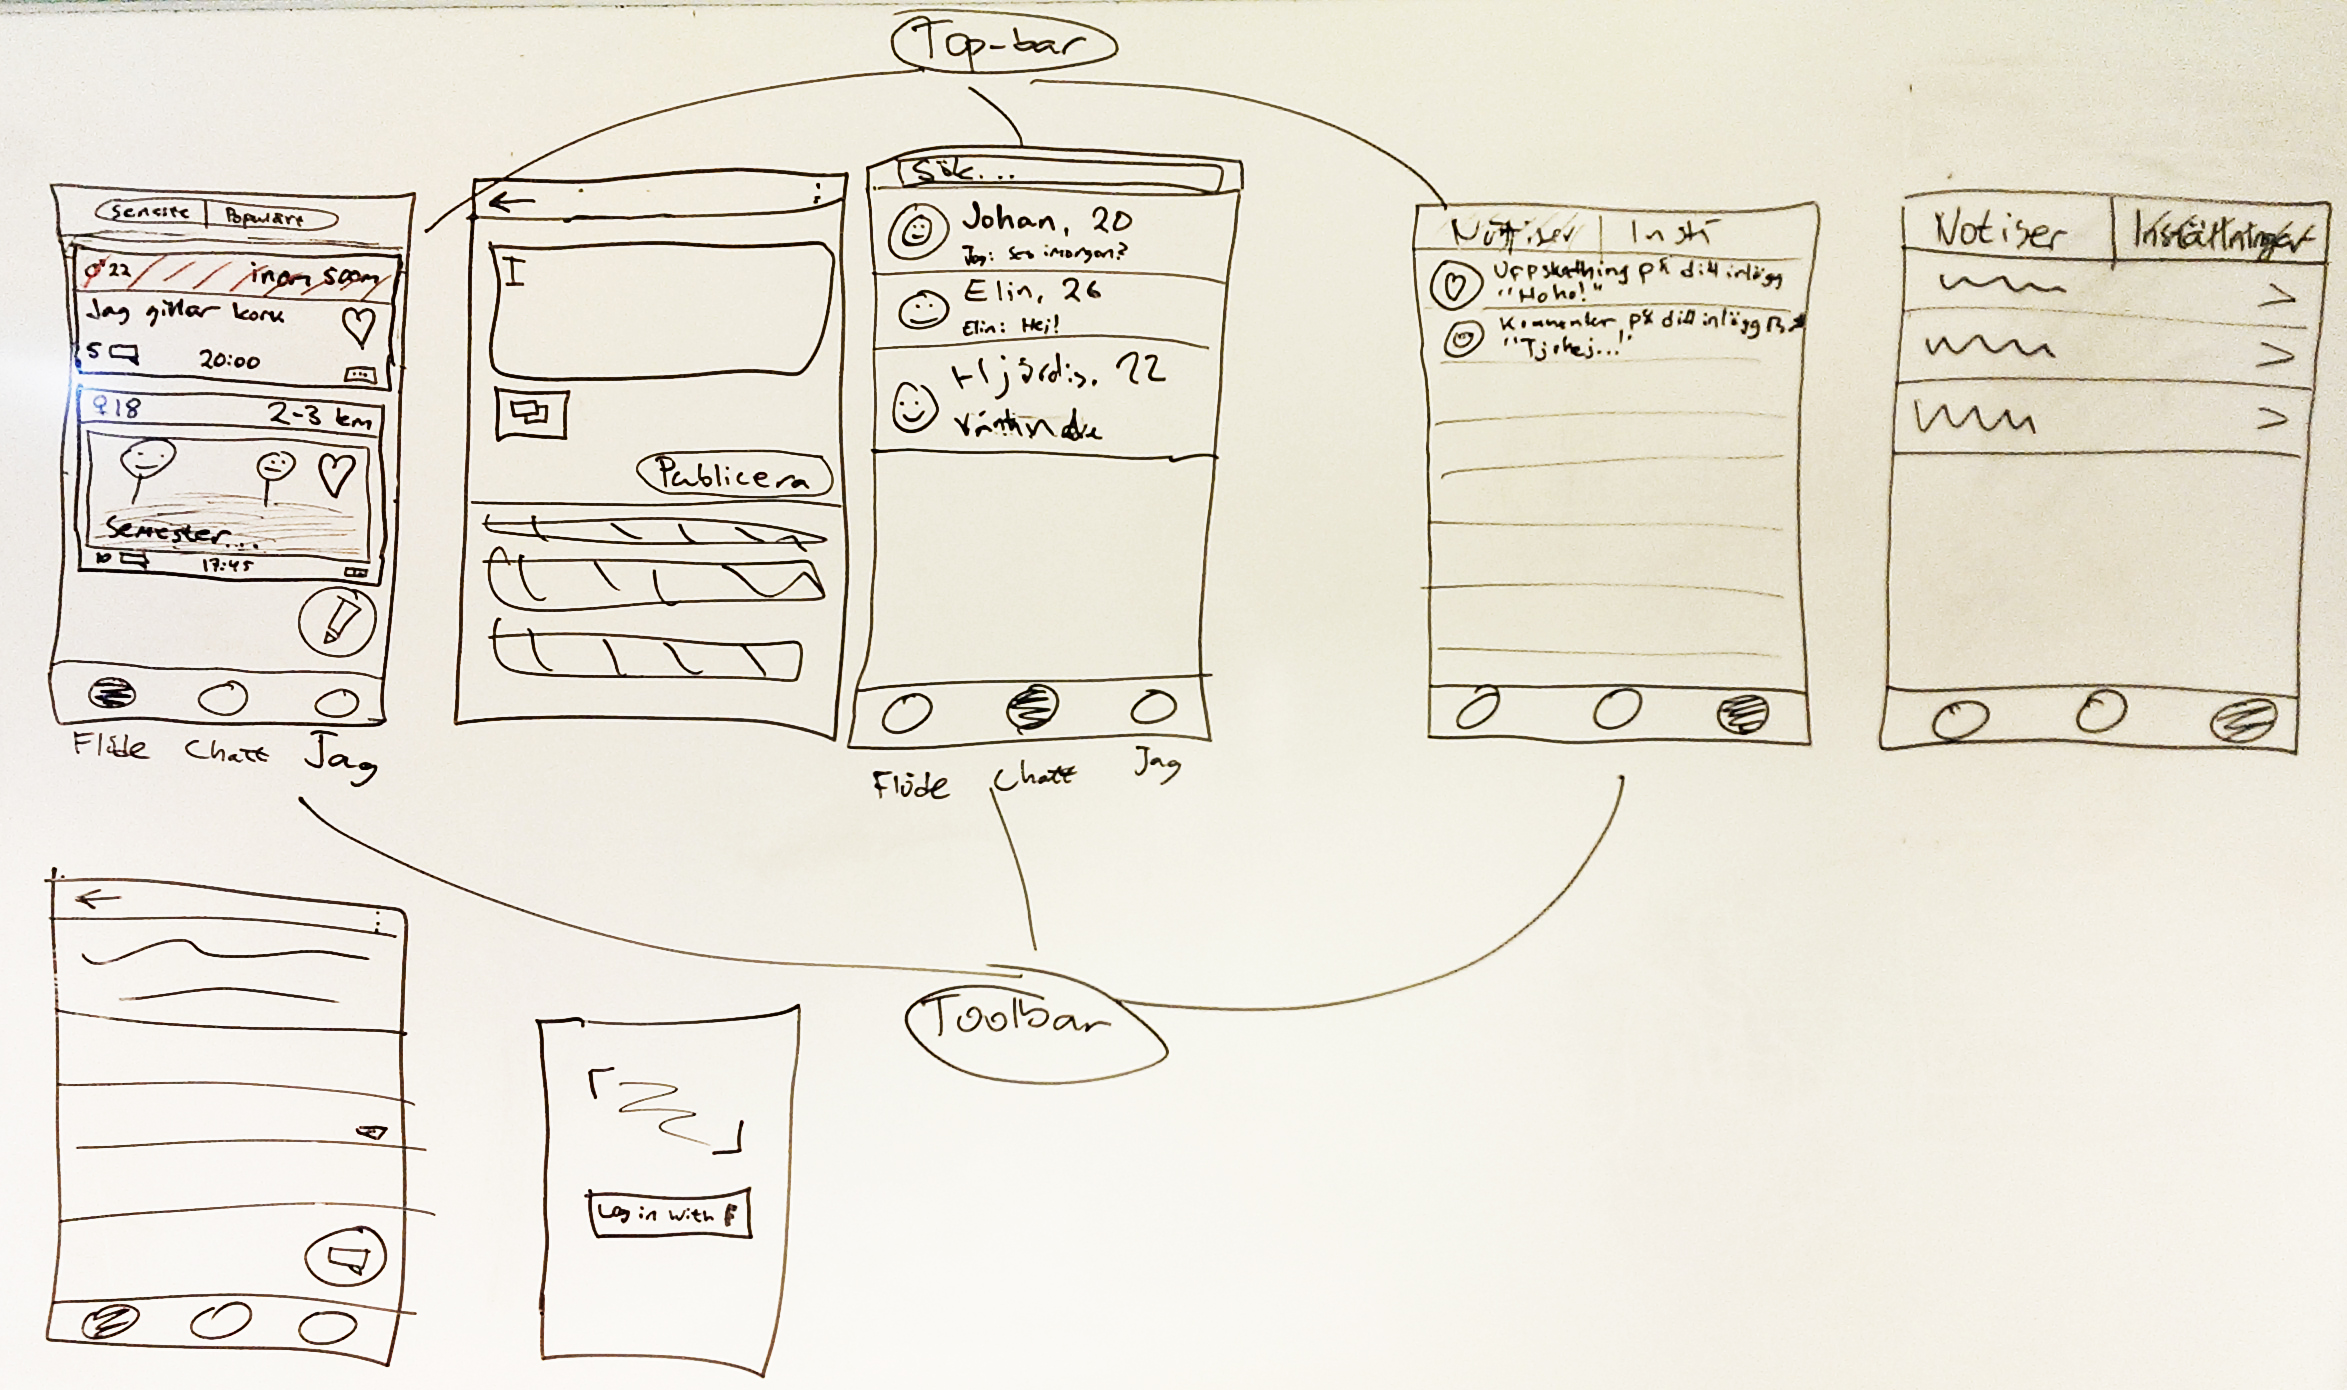 Top-bar
Senaste | Populärt
♂22 inom 500m
Jag gillar kork
5 20:00
♀18 2-3 km
Semester...
10 17:45
Flöde Chatt Jag
Publicera
Sök...
Johan, 20
Jag: Ses imorgon?
Elin, 26
Elin: Hej!
Hjördis, 22
Flöde Chatt Jag
Notiser | Instä
Uppskattning på ditt inlägg
"Hoho!"
Kommentar på ditt inlägg
"Tjohej..."
Notiser | Inställningar
Toolbar
Log in with F